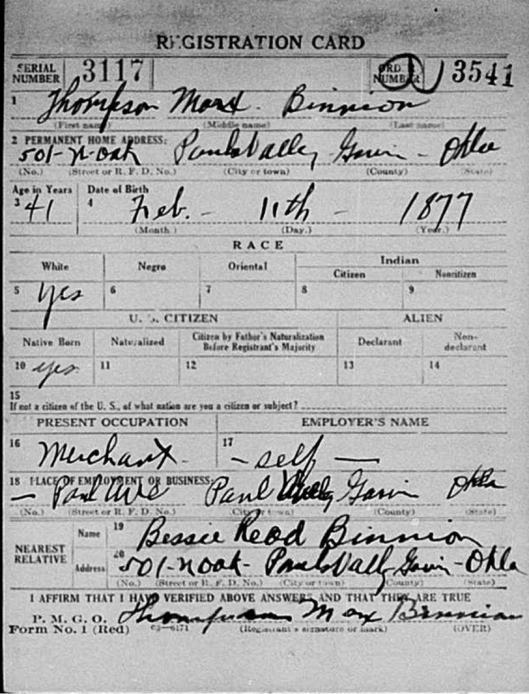 REGISTRATION CARD
SERIAL NUMBER 3117 ORD NUMBER 3541
1 Thompson Max Binnion
(First name) (Middle name) (Last name)
2 PERMANENT HOME ADDRESS:
501 - N - Oak Pauls Valley Garvin - Okla
(No.) (Street or R. F. D. No.) (City or town) (County) (State)
Age in Years Date of Birth
3 41 4 Feb. - 11th - 1877
(Month) (Day.) (Year.)
RACE
White Negro Oriental Indian
Citizen Noncitizen
5 yes 6 7 8 9
U. S. CITIZEN ALIEN
Native Born Naturalized Citizen by Father's Naturalization Before Registrant's Majority Declarant Non-declarant
10 yes 11 12 13 14
15
If not a citizen of the U. S., of what nation are you a citizen or subject?
PRESENT OCCUPATION EMPLOYER'S NAME
16 Merchant. 17 - self -
18 PLACE OF EMPLOYMENT OR BUSINESS:
- Paul Ave Paul Valley Garvin Okla
(No.) (Street or R. F. D. No.) (City or town) (County) (State)
NEAREST RELATIVE
Name 19 Bessie Read Binnion
Address 20 501 - N Oak - Pauls Vall Garvin - Okla
(No.) (Street or R. F. D. No.) (City or town) (County) (State)
I AFFIRM THAT I HAVE VERIFIED ABOVE ANSWERS AND THAT THEY ARE TRUE
P. M. G. O.
Form No. 1 (Red) Thompson Max Binnion
(Registrant's signature or mark) (OVER)